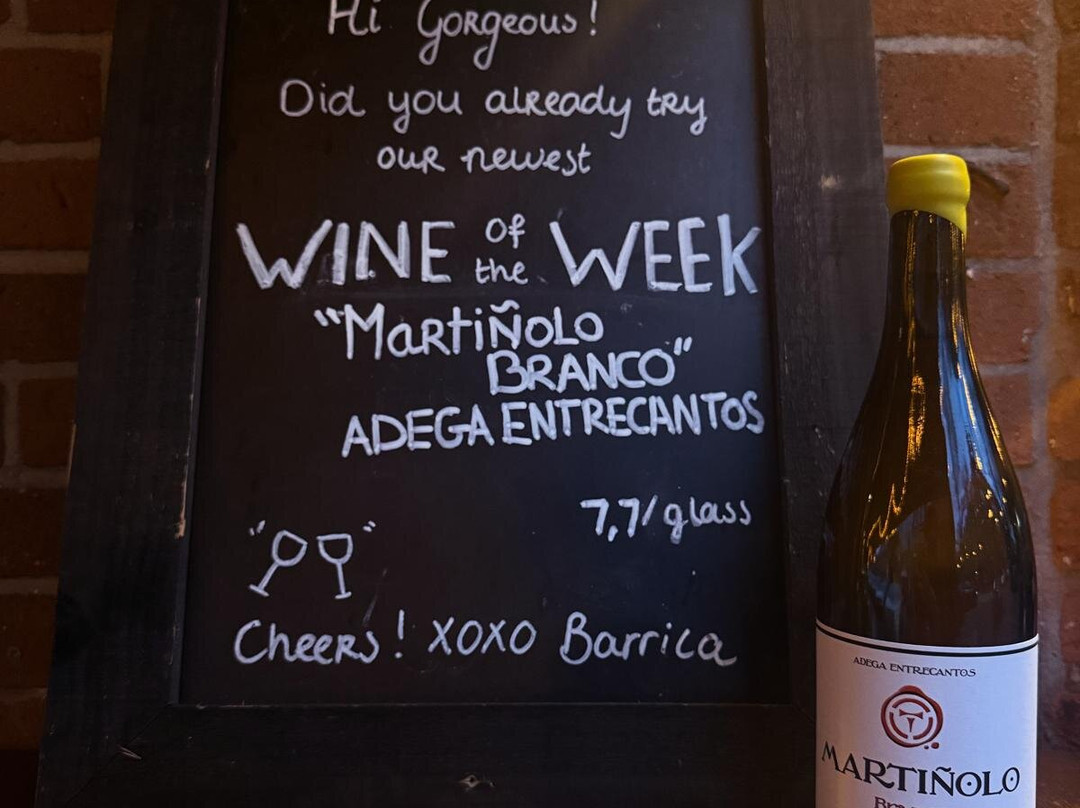 Hi Gorgeous!
Did you already try
our newest
WINE of the WEEK
"MartiÑoLo
BRANCO"
ADEGA ENTRECANTOS
7,7/glass
Cheers! XOXO Barrica
ADEGA ENTRECANTOS
MARTIÑOLO